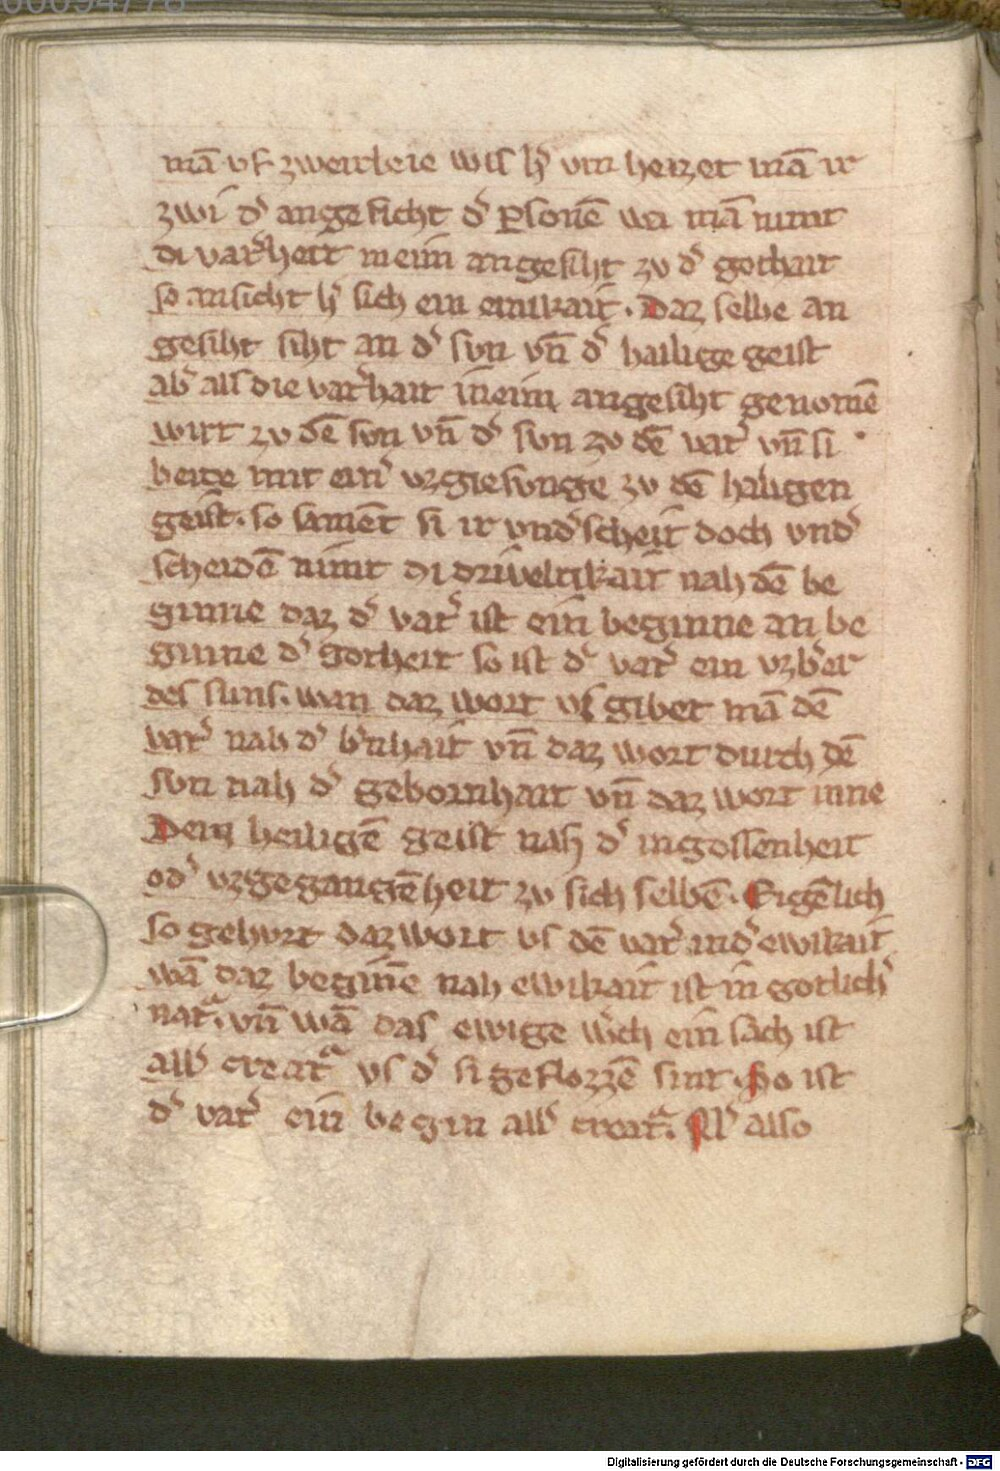 00094778
mā vf zweirleie wis hˀ vm heizet mā ir
zwi dˀ angesicht dˀ ꝑsonē wā mā nimt
di vatˀheit in eim angesiht zv dˀ gothait
so ansicht hˀ sich ein einikait · Daz selbe an
gesiht siht an dˀ svn vn̄ dˀ hailige geist
abˀ als die vatˀhait in eim angesiht genomē
wirt zv dē svn vn̄ dˀ svn zv dē vatˀ vn̄ si
beide mit einˀ vzgiesvnge zv dē hailigen
geist · so nimēt si ir vndˀscheit doch vndˀ
scheidē nimt di driveltikait nah dē be
ginne daz dˀ vatˀ ist ein beginne an be
ginne dˀ gotheit so ist dˀ vatˀ ein vzbˀer
des suns · wan daz wort vs gibet mā dē
vatˀ nah dˀ bˀnhait vn̄ daz wort durch dē
svn nah dˀ gebornhait vn̄ daz wort inne
Dem heiligē geist nah dˀ ingossenheit
odˀ vzgegangēheit zv sich selbē · Eigēlich
so gehvrt daz wort vs dē vatˀ in dˀ ewikait
wā daz beginē nah ewikait ist in gotlichˀ
natᵃ · vn̄ wā das ewige ein sach ist
allˀ creatᵃ vs dˀ si geflozzē sint · So ist
dˀ vatˀ ein begin allˀ creatᵃ · also
Digitalisierung gefördert durch die Deutsche Forschungsgemeinschaft - DFG